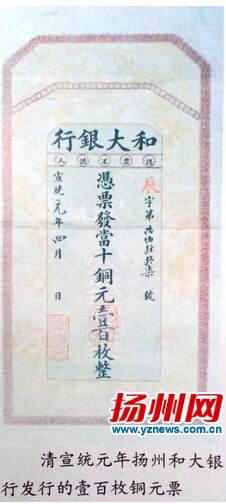 和大銀行
認票不認人
辰字第 號
憑票發當十銅元壹百枚整
宣統元年四月 日
扬州网
www.yznews.cn
清宣统元年扬州和大银
行发行的壹百枚铜元票